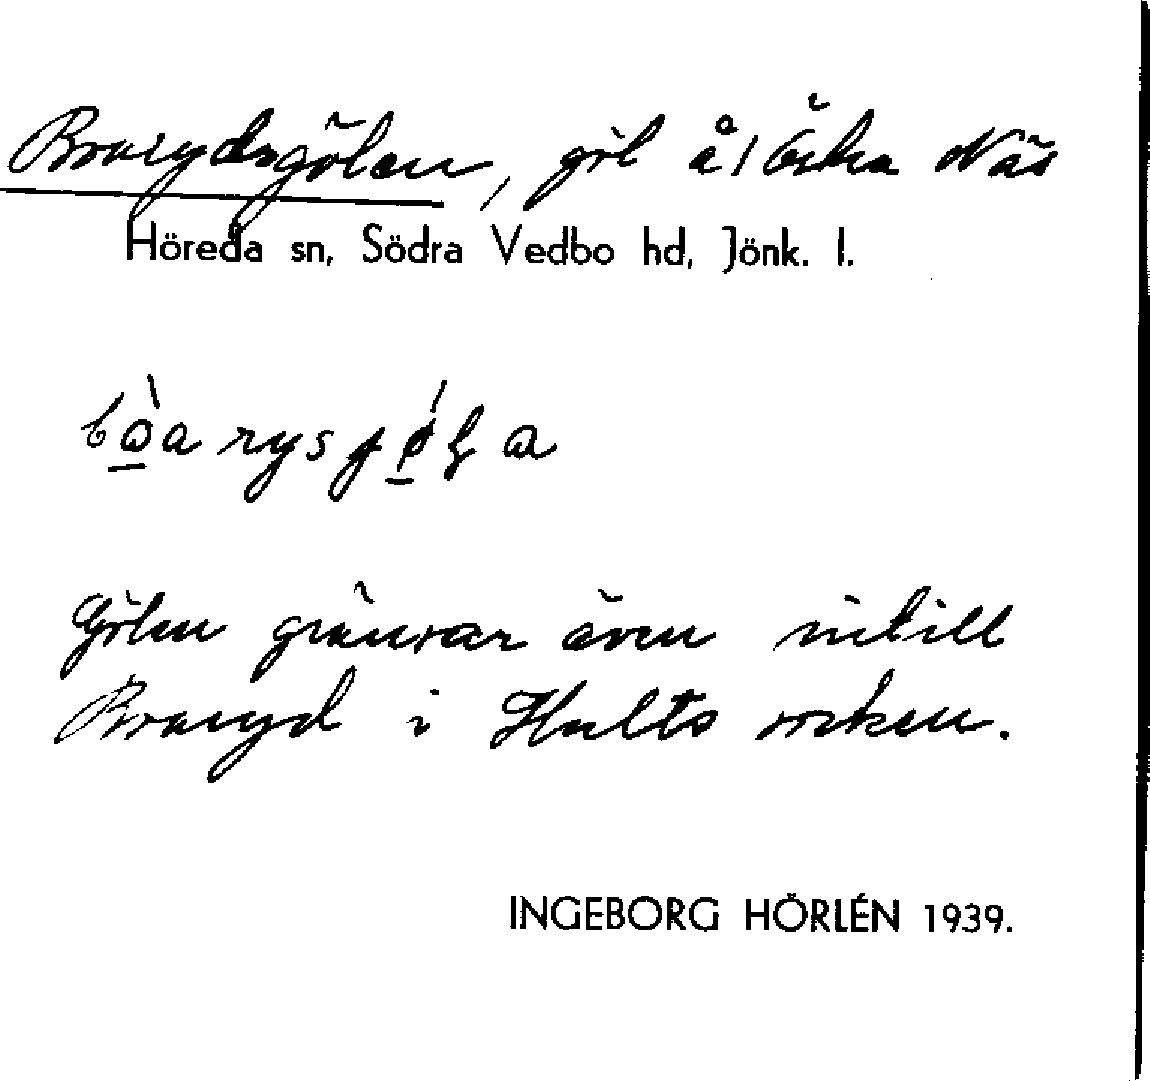 Boarydsgölen, göl å/ Östra Näs
Höreda sn, Södra Vedbo hd, Jönk. l.
Gölen gränsar även intill
Boaryd i Hults socken.
INGEBORG HÖRLÉN 1939.